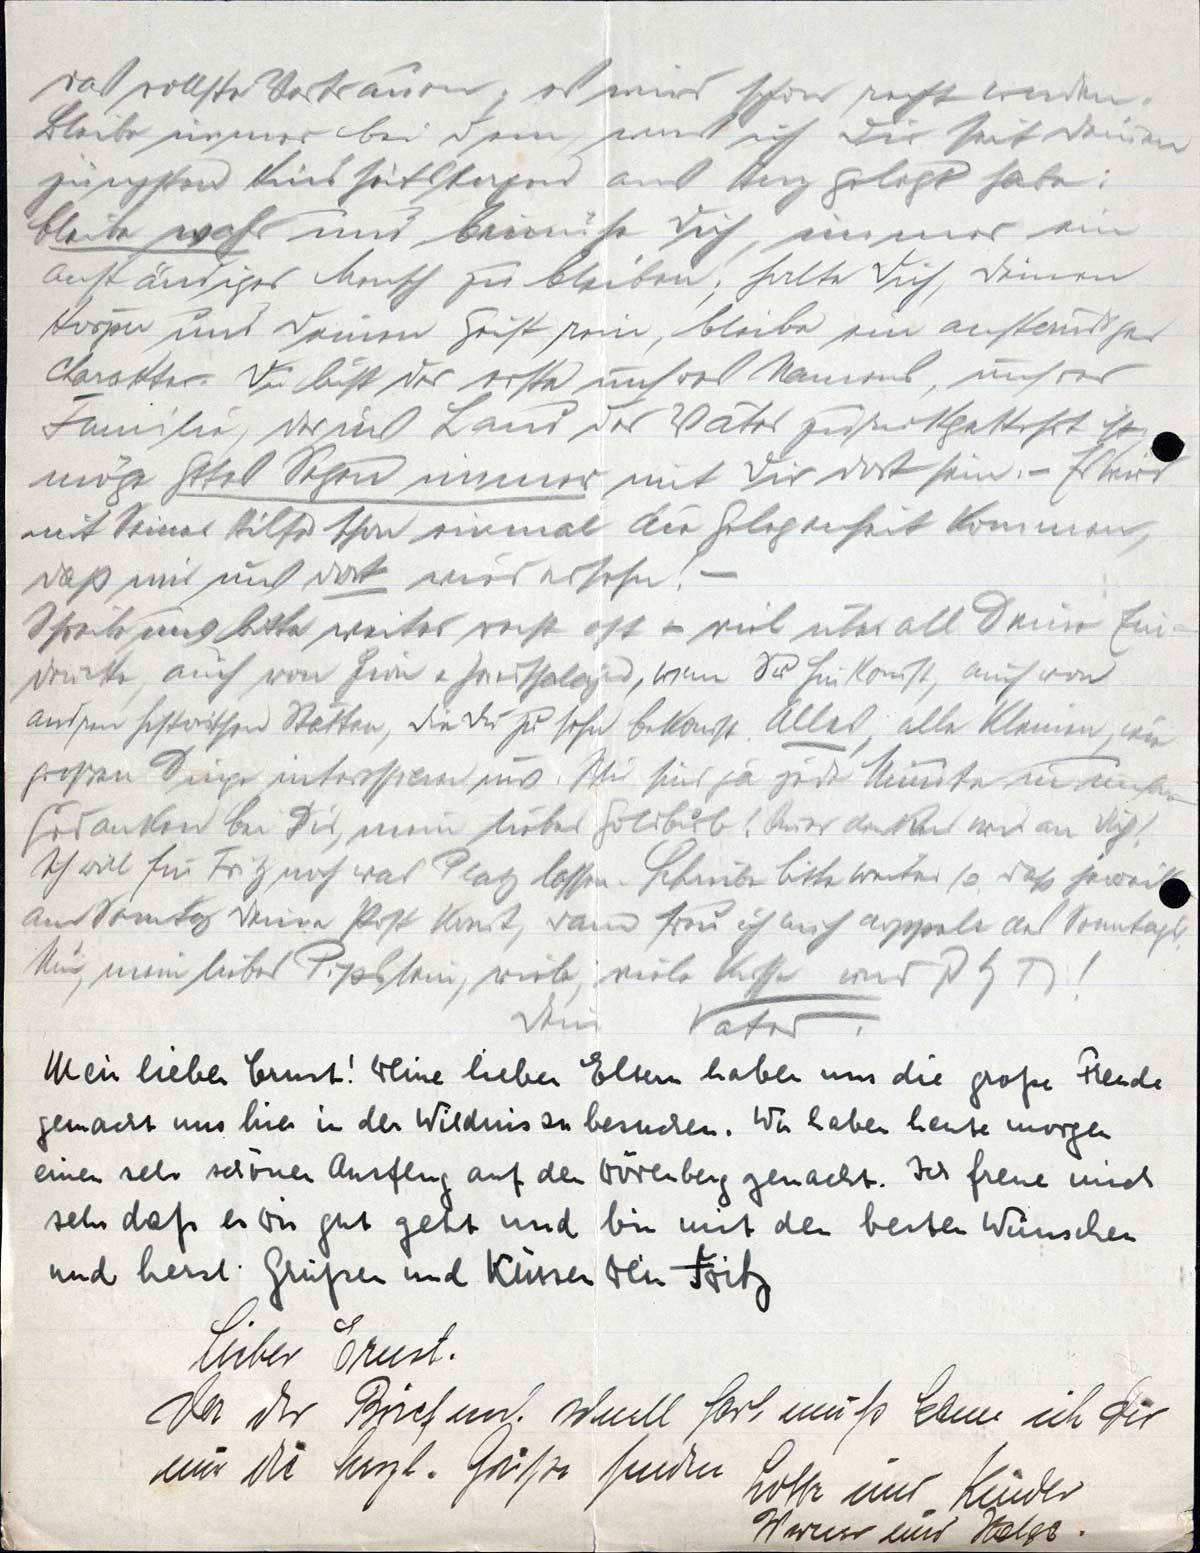 das vollste Vertrauen, es wird schon recht werden.
Bleibe immer bei dem, was ich Dir seit Deinen
jüngsten Kindheitstagen ans Herz gelegt habe:
bleibe wahr und bemühe Dich, immer ein
anständiger Mensch zu bleiben; halte Dich, Deinen
Körper und Deinen Geist rein, bleibe ein anständiger
Charakter. Du bist der erste unsres Namens, unsrer
Familie, der ins Land der Väter zurückgekehrt ist,
möge Gottes Segen immer mit Dir dort sein. – Es wird
mit Seiner Hilfe schon einmal die Gelegenheit kommen,
daß wir uns dort wiedersehn! –
Schreib uns bitte weiter recht oft + viel über all Deine Ein-
drücke, auch von Zion + Jerusalem, wenn Du hinkomst, auch von
andren historischen Stätten, die Du zu sehn bekomst. Alles, alle kleinen, wie
großen Dinge interessieren uns. Wir sind ja jede Minute in unsren
Gedanken bei Dir, mein lieber Goldbub! Immer denken wir an Dich!
Ich will für Fritz noch was Platz lassen. Schreibe bitte weiter so, daß jeweils
am Sonntag Deine Post komt, dann freu ich mich doppelt des Sonntags.
Nun, mein lieber, viele, viele Küsse und
Dein Vater.
Mein lieber Ernst! Deine lieben Eltern haben uns die große Freude
gemacht uns hier in der Wildnis zu besuchen. Wir haben heute morgen
einen sehr schönen Ausflug auf den Dörenberg gemacht. Ich freue mich
sehr daß es Dir gut geht und bin mit den besten Wünschen
und herzl. Grüßen und Küssen Dein Fritz
Lieber Ernst.
Da der Brief schnell fort muß kann ich Dir
nur die herzl. Grüße senden
Lotte und Kinder
Werner und Helga.